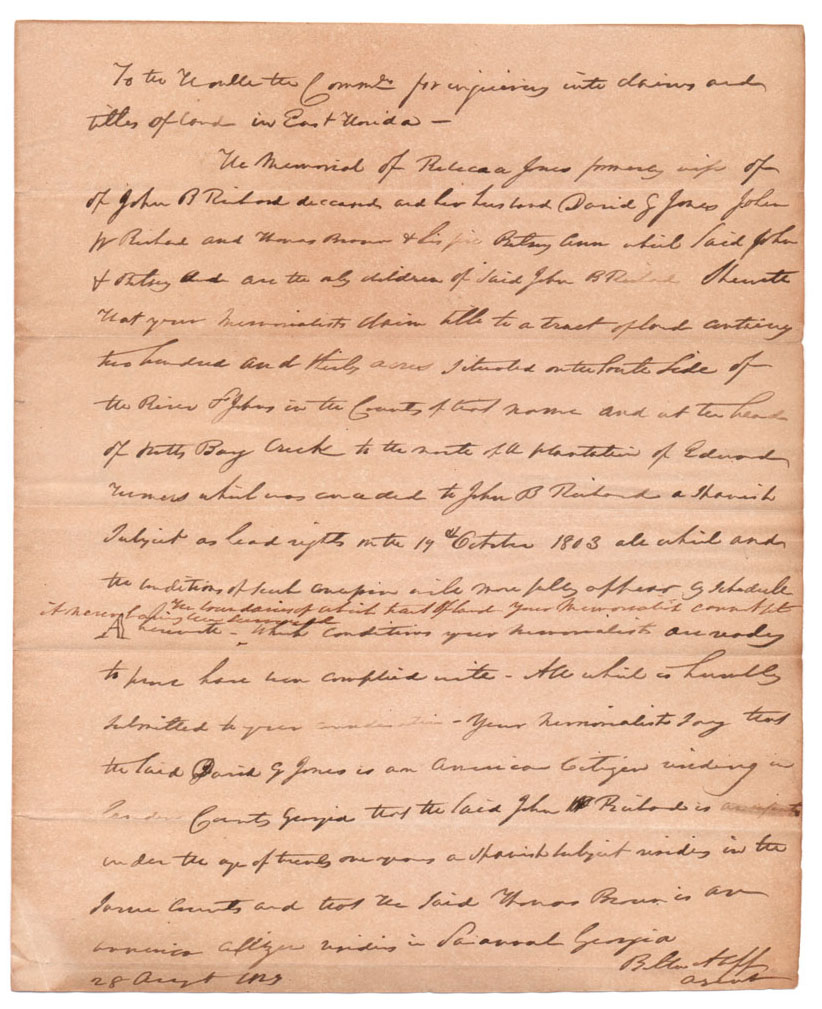 To the Honble the Commrs for inquiring into claims and
titles of land in East Florida —
The Memorial of Rebecca Jones formerly wife of
of John B Richard deceased and her husband David G Jones John
W Richard and Thomas Brown & his Betsey Ann which Said John
& Betsey Ann are the only children of Said John B Richard Sheweth
that your Memorialists claim title to a tract of land containing
two hundred and thirty acres situated on the South Side of
the River St Johns in the County of that name and at the head
of Bay Creek to the north of a plantation of Edward
Turners which was conceded to John B Richard a Spanish
Subject as head rights on the 19th October 1803 all which and
the conditions of such concession will more fully appear by schedule
The boundaries of which tract of land your Memorialists cannot set
it never having been surveyed
A herewith - Which conditions your Memorialists are ready
to prove have been complied with - All which is humbly
submitted to your consideration - Your Memorialists say that
the Said David G Jones is an American Citizen residing in
County Georgia that the Said John W Richard is
under the age of twenty one years a Spanish Subject resides in the
Same County and that the Said Thomas Brown is an
American Citizen resides in Savannah Georgia
28 Augt 1823
Agent